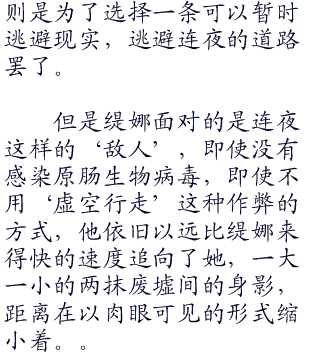 则是为了选择一条可以暂时
逃避现实，逃避连夜的道路
罢了。
但是缇娜面对的是连夜
这样的‘敌人’，即使没有
感染原肠生物病毒，即使不
用‘虚空行走’这种作弊的
方式，他依旧以远比缇娜来
得快的速度追向了她，一大
一小的两抹废墟间的身影，
距离在以肉眼可见的形式缩
小着。。